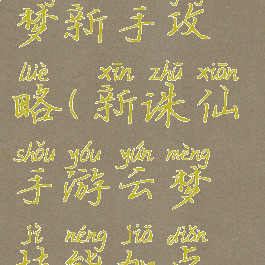 梦新手攻
lüè xīn zhū xiān
略(新诛仙
shǒu yóu yún mèng
手游云梦
jì néng jiā diǎn
技能加点